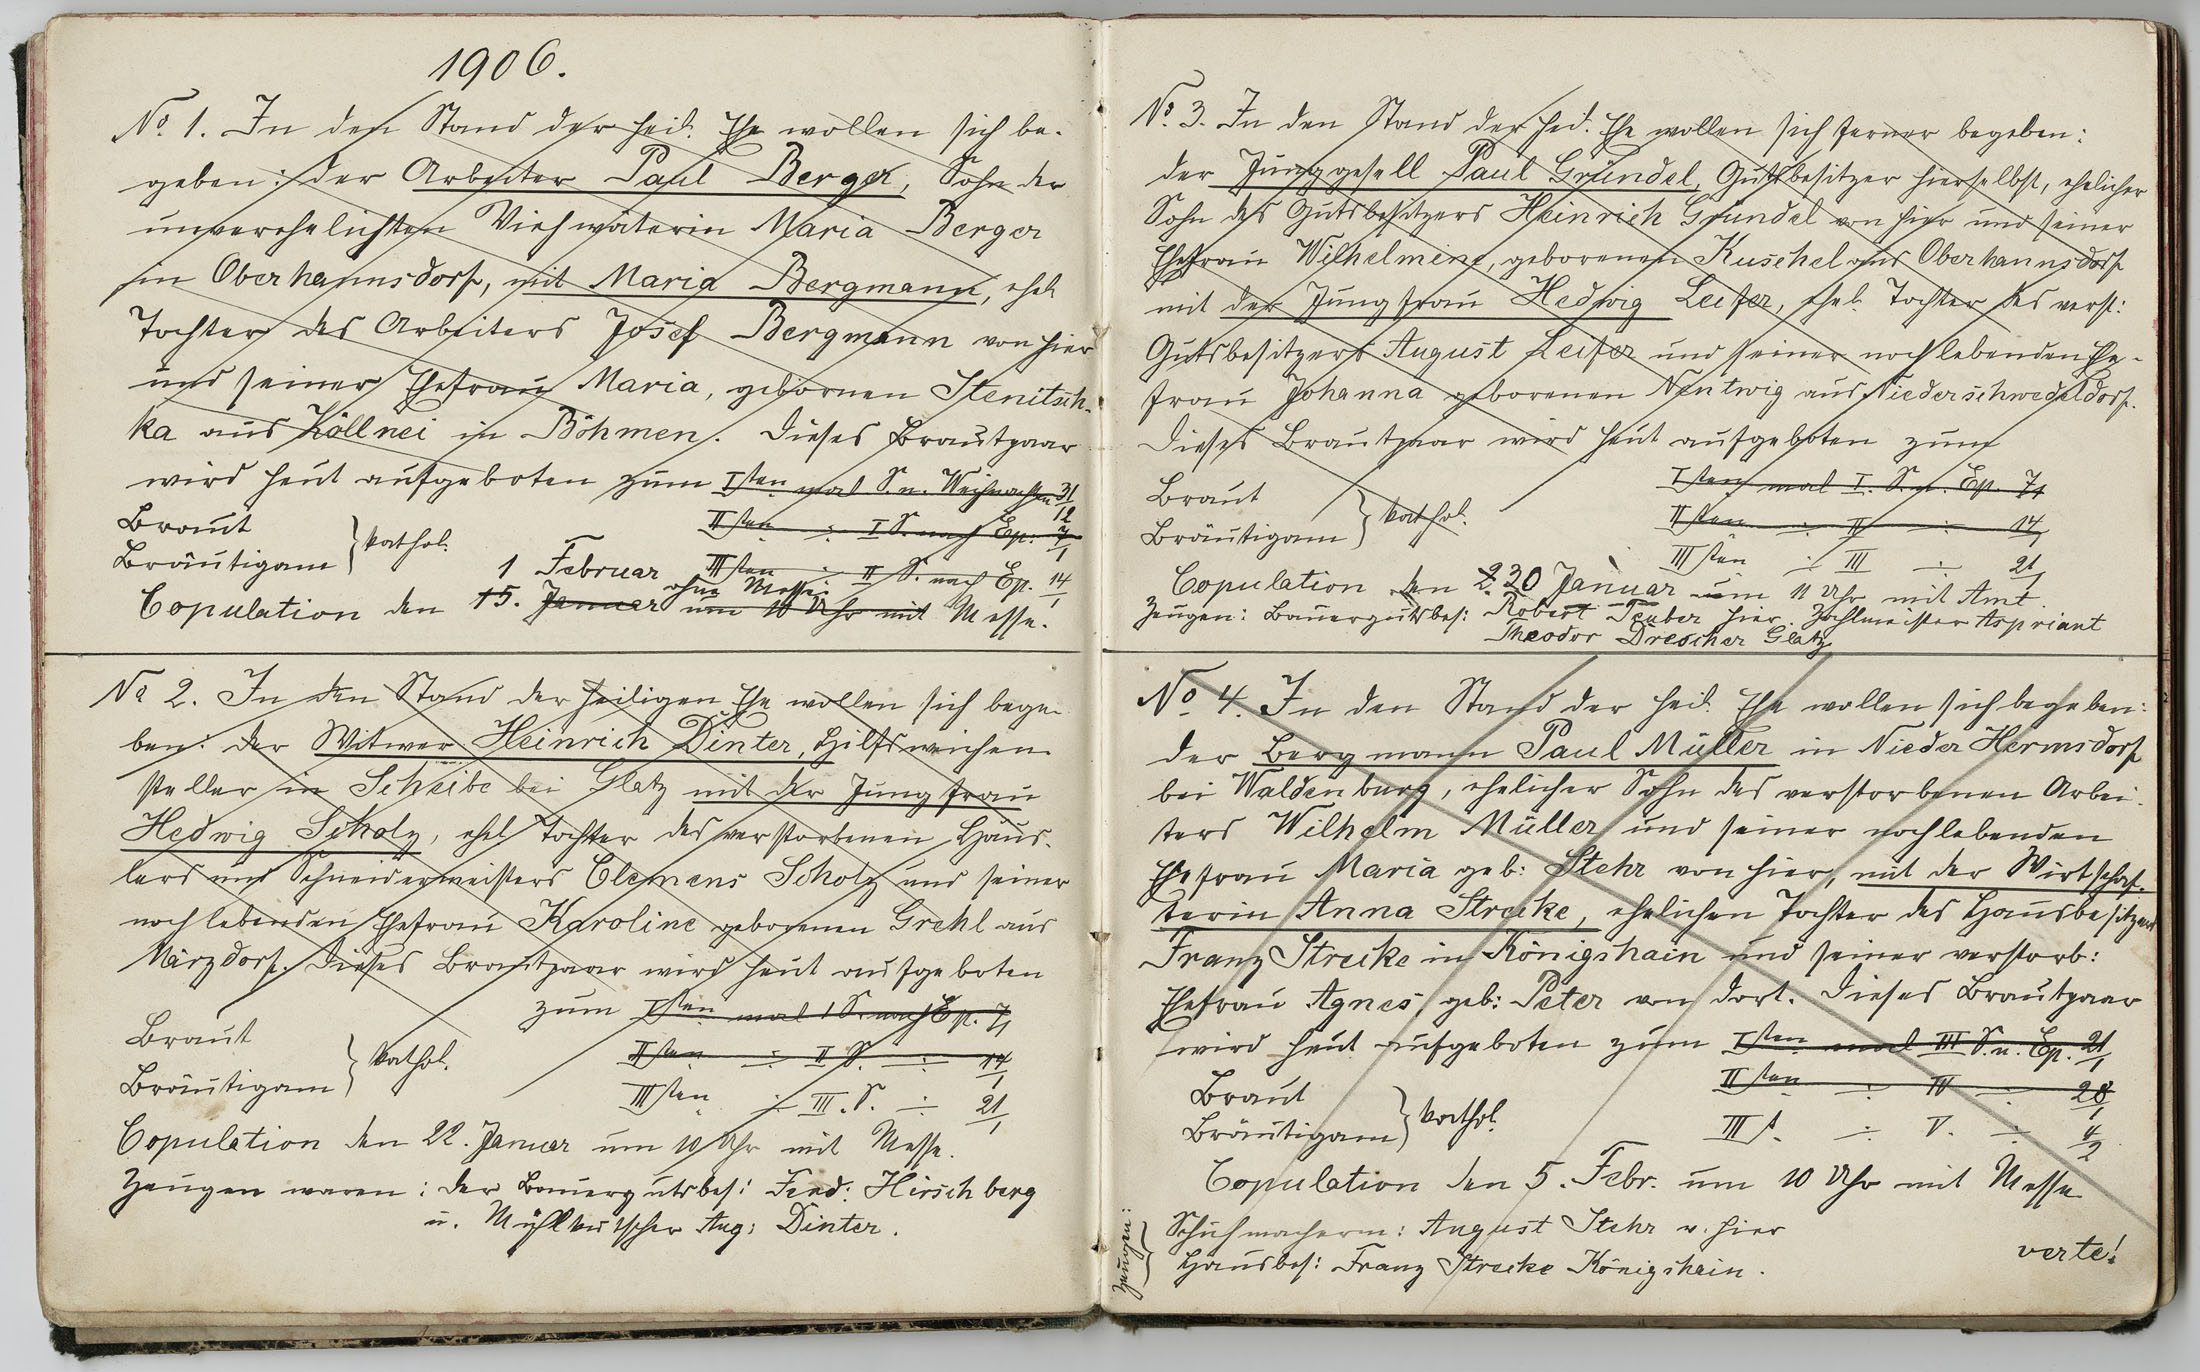 1906.
No 1. In den Stand der heil. Ehe wollen sich be-
geben: der Arbeiter Paul Berger, Sohn der
unverehelichten Viehwärterin Maria Berger
in Oberhannsdorf, mit Maria Bergmann, ehel.
Tochter des Arbeiters Josef Bergmann von hier
und seiner Ehefrau Maria, gebornen Stenitsch-
ka aus Köllnei in Böhmen. Dieses Brautpaar
wird heut aufgeboten zum Isten mal S. n. Weihnachten 31/12
Braut
Bräutigam } kathol.
IIsten ÷ I S. nach Ep. 7/1
IIIsten ÷ II S. nach Ep. 14/1
1 Februar ohne Messe:
Copulation den 15. Januar um 10 Uhr mit Messe.
No 2. In den Stand der heiligen Ehe wollen sich bege-
ben: der Witwer Heinrich Dinter, Hilfsweichen-
steller in Scheibe bei Glatz mit der Jungfrau
Hedwig Scholz, ehel. Tochter des verstorbenen Häus-
lers und Schneidermeisters Clemens Scholz und seiner
noch lebenden Ehefrau Karoline geborenen Grehl aus
Märzdorf. Dieses Brautpaar wird heut aufgeboten
zum Isten mal I S. nach Ep. 7/1
Braut
Bräutigam } kathol.
IIsten ÷ II S. ÷ 14/1
IIIsten ÷ III. S. ÷ 21/1
Copulation den 22. Januar um 10 Uhr mit Messe.
Zeugen waren: der Bauergutsbes: Ferd: Hirschberg
u. Mühlkutscher Aug: Dinter.
No. 3. In den Stand der heil. Ehe wollen sich ferner begeben:
der Junggesell Paul Gründel, Gutsbesitzer hierselbst, ehelicher
Sohn des Gutsbesitzers Heinrich Gründel von hier und seiner
Ehefrau Wilhelmine, geborenen Kuschel aus Oberhannsdorf
mit der Jungfrau Hedwig Leifer, ehel. Tochter des verst:
Gutsbesitzers August Leifer und seiner noch lebenden Ehe-
frau Johanna geborenen Nentwig aus Niederschwedeldorf.
Dieses Brautpaar wird heut aufgeboten zum
Isten mal I. S. n. Ep. 7/1
Braut
Bräutigam } kathol.
IIsten ÷ II ÷ 14/1
IIIsten ÷ III ÷ 21/1
Copulation den 2 30 Januar um 11 Uhr mit Amt.
Zeugen: Bauergutsbes: Robert Teuber hier. Zahlmeister Aspriant
Theodor Drescher Glatz
No. 4. In den Stand der heil. Ehe wollen sich begeben:
der Bergmann Paul Müller in Nieder Hermsdorf
bei Waldenburg, ehelicher Sohn des verstorbenen Arbei-
ters Wilhelm Müller und seiner noch lebenden
Ehefrau Maria geb: Stehr von hier, mit der Wirtschaf-
terin Anna Strecke, ehelichen Tochter des Hausbesitzers
Franz Strecke in Königshain und seiner verstorb:
Ehefrau Agnes, geb: Peter von dort. Dieses Brautpaar
wird heut aufgeboten zum Isten mal III S. n. Ep. 21/1
IIsten ÷ IV ÷ 28/1
Braut
Bräutigam } kathol.
III s. ÷ V. ÷ 4/2
Copulation den 5. Febr. um 10 Uhr mit Messe
Zeugen: { Schuhmacherm: August Stehr v. hier
Hausbes: Franz Strecke Königshain.
verte!